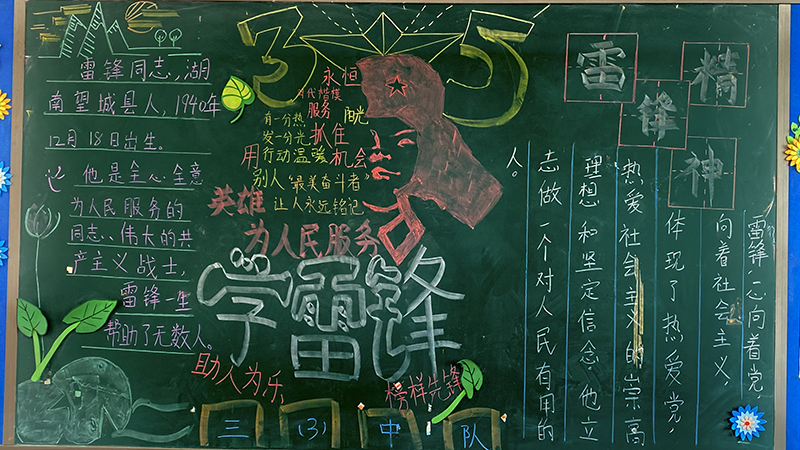 雷锋同志,湖
南望城县人,1940年
12月18日出生。
他是全心全意
为人民服务的
同志、伟大的共
产主义战士,
雷锋一生
帮助了无数人。
3 5
永恒
时代楷模
服务 阳光
有一分热
发一分光 抓住
用行动温暖 机会
别人 "最美奋斗者"
让人永远铭记
英雄
为人民服务
学雷锋
助人为乐
榜样先锋
三 (3) 中 队
雷锋精神
雷锋,心向着党,
向着社会主义,
体现了热爱党,
热爱社会主义的崇高
理想和坚定信念,他立
志做一个对人民有用的
人。